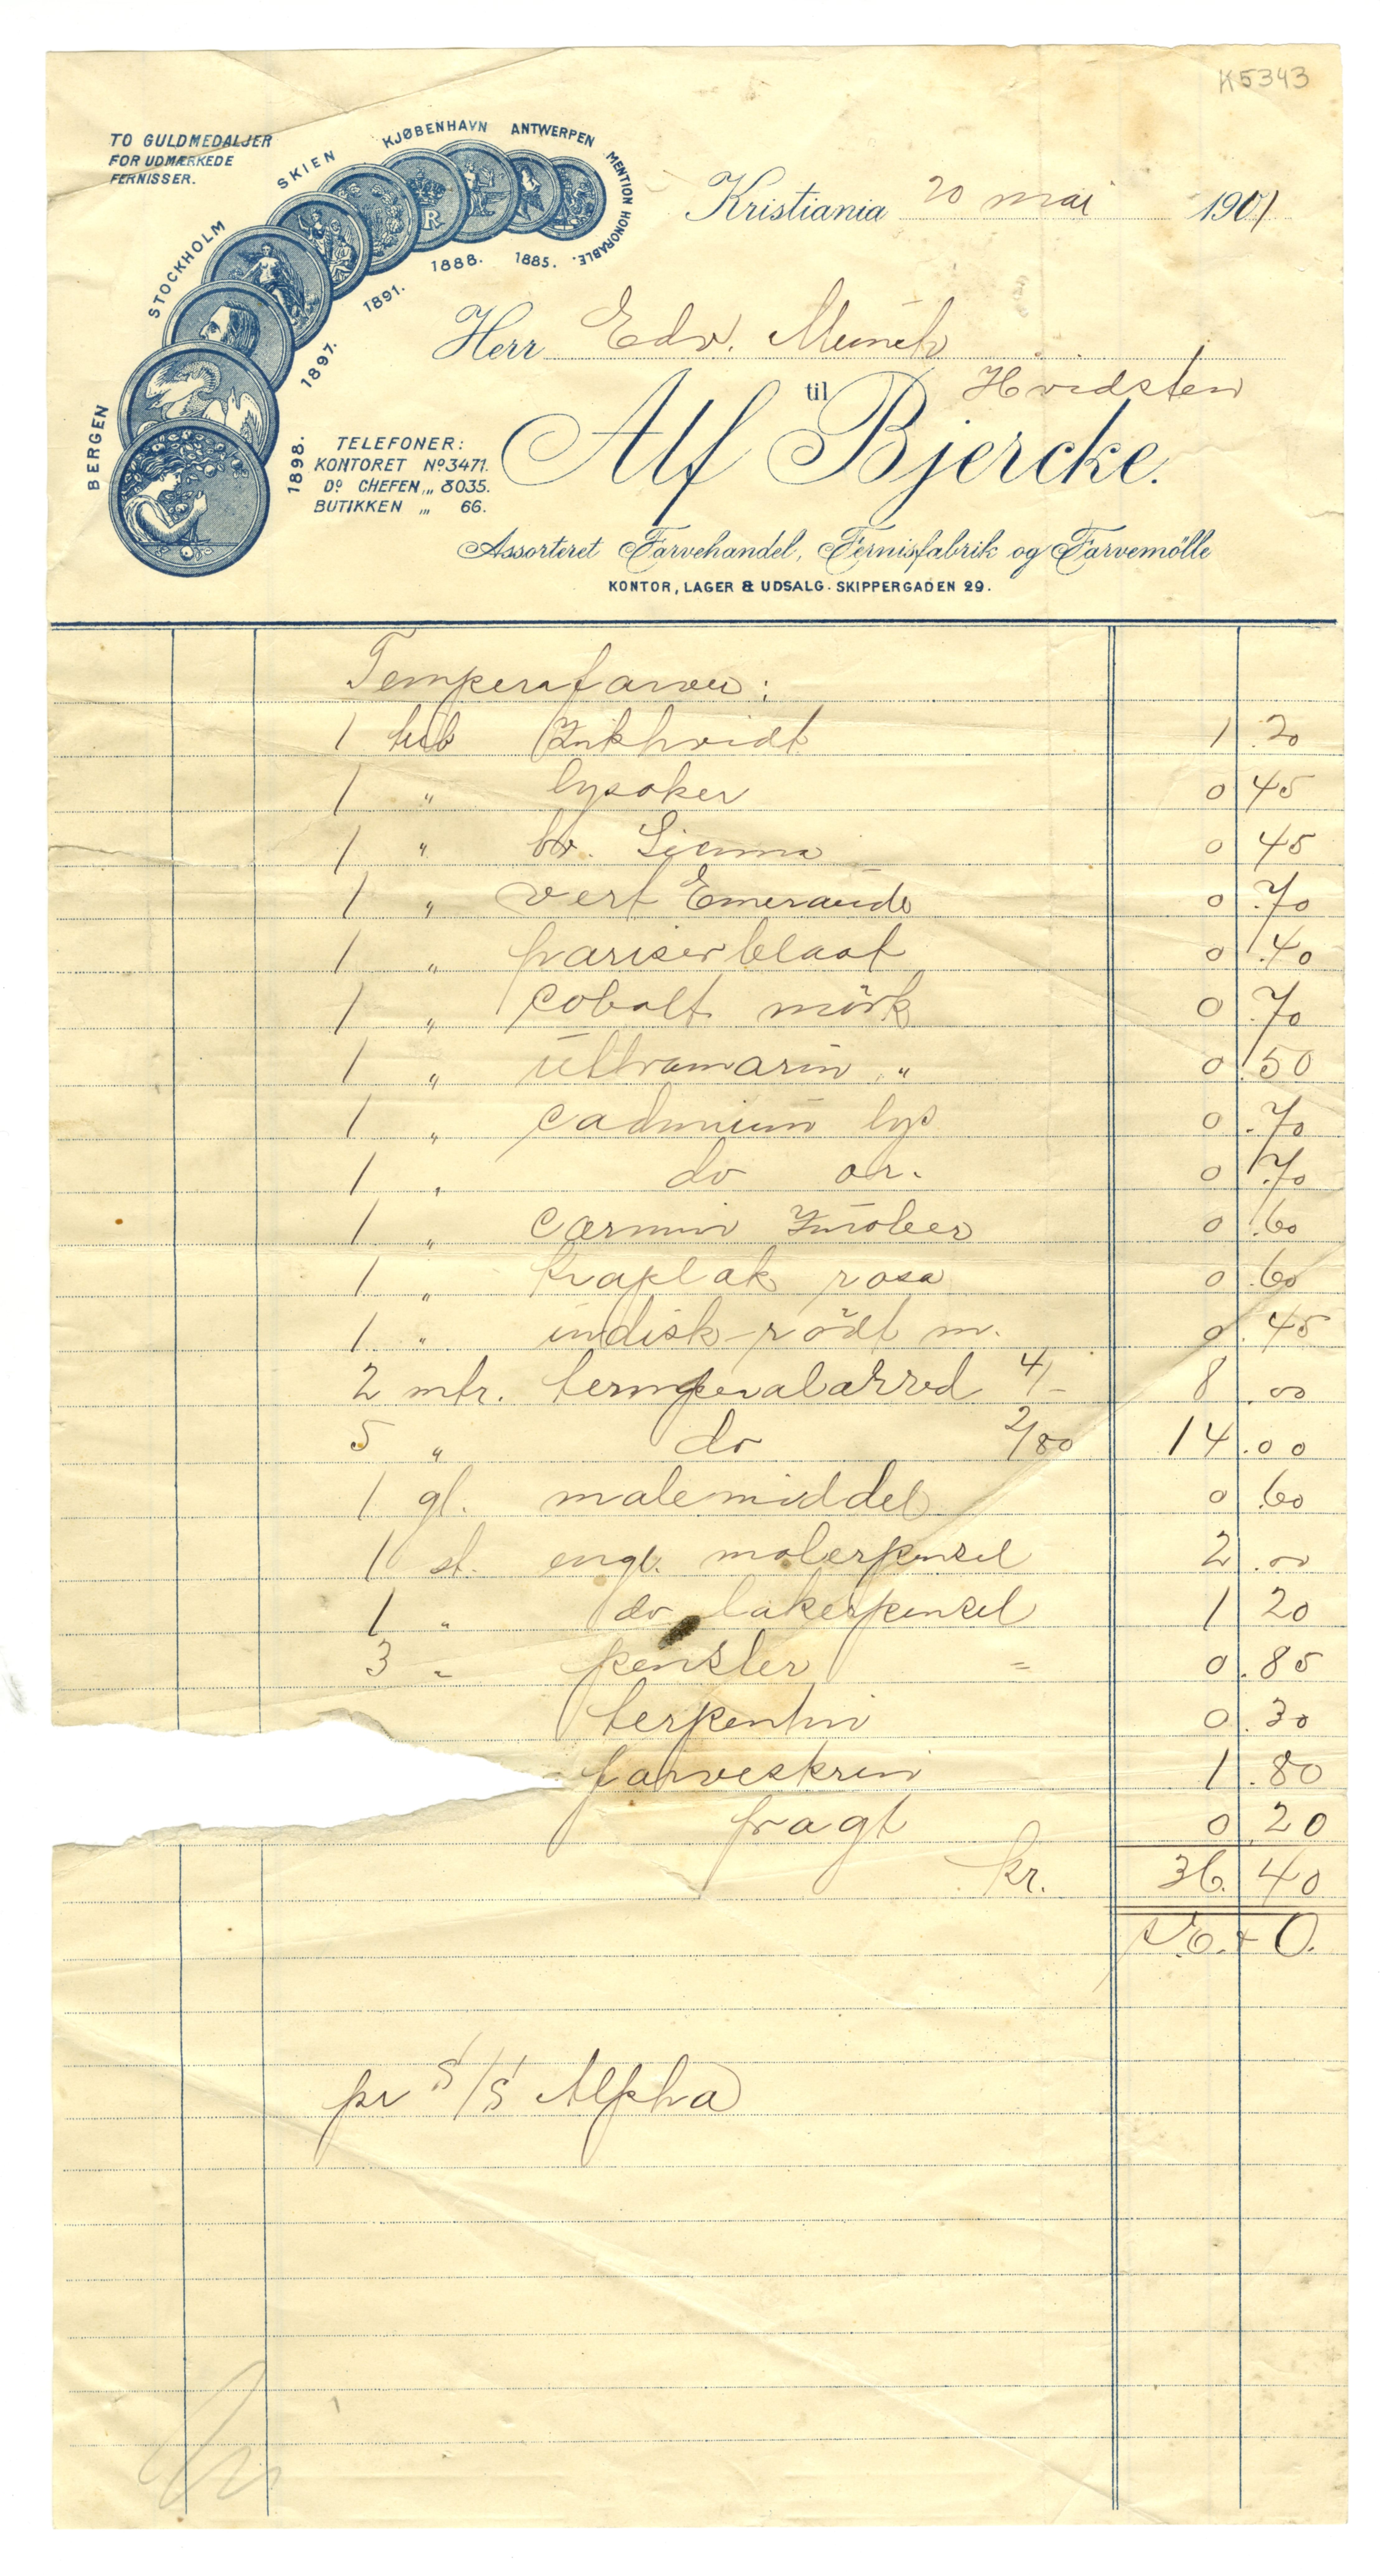 K5343
TO GULDMEDALJER
FOR UDMÆRKEDE
FERNISSER.
BERGEN STOCKHOLM SKIEN KJØBENHAVN ANTWERPEN MENTION HONORABLE.
1898. 1897. 1891. 1888. 1885.
Kristiania 20 mai 1901
Herr Edv. Munch
Hvidsten
til
Alf Bjercke.
TELEFONER:
KONTORET No 3471.
Do CHEFEN „ 8035.
BUTIKKEN „ 66.
Assorteret Farvehandel, Fernisfabrik og Farvemölle
KONTOR, LAGER & UDSALG. SKIPPERGADEN 29.
Temperafarver:
1 tub Zinkhvidt 1.20
1 " lysoker 0 45
1 " br. Sienna 0 45
1 " vert Emeraude 0.70
1 " pariserblaat 0.40
1 " Cobolt mörk 0.70
1 " ultramarin " 0.50
1 " cadmium lys 0.70
1 " do or. 0.70
1 " carmin Zinober 0.60
1 " kraplak rosa 0.60
1 " indisk-rödt m. 0.45
2 mtr. temperalærred 4/- 8.00
5 " do 2/80 14.00
1 gl. malemiddel 0.60
1 st. engl. malerpensel 2.00
1 " do lakerpensel 1 20
3 " pensler = 0.85
terpentin 0.30
farveskrin 1.80
fragt 0 20
kr. 36.40
pr S/S Alpha